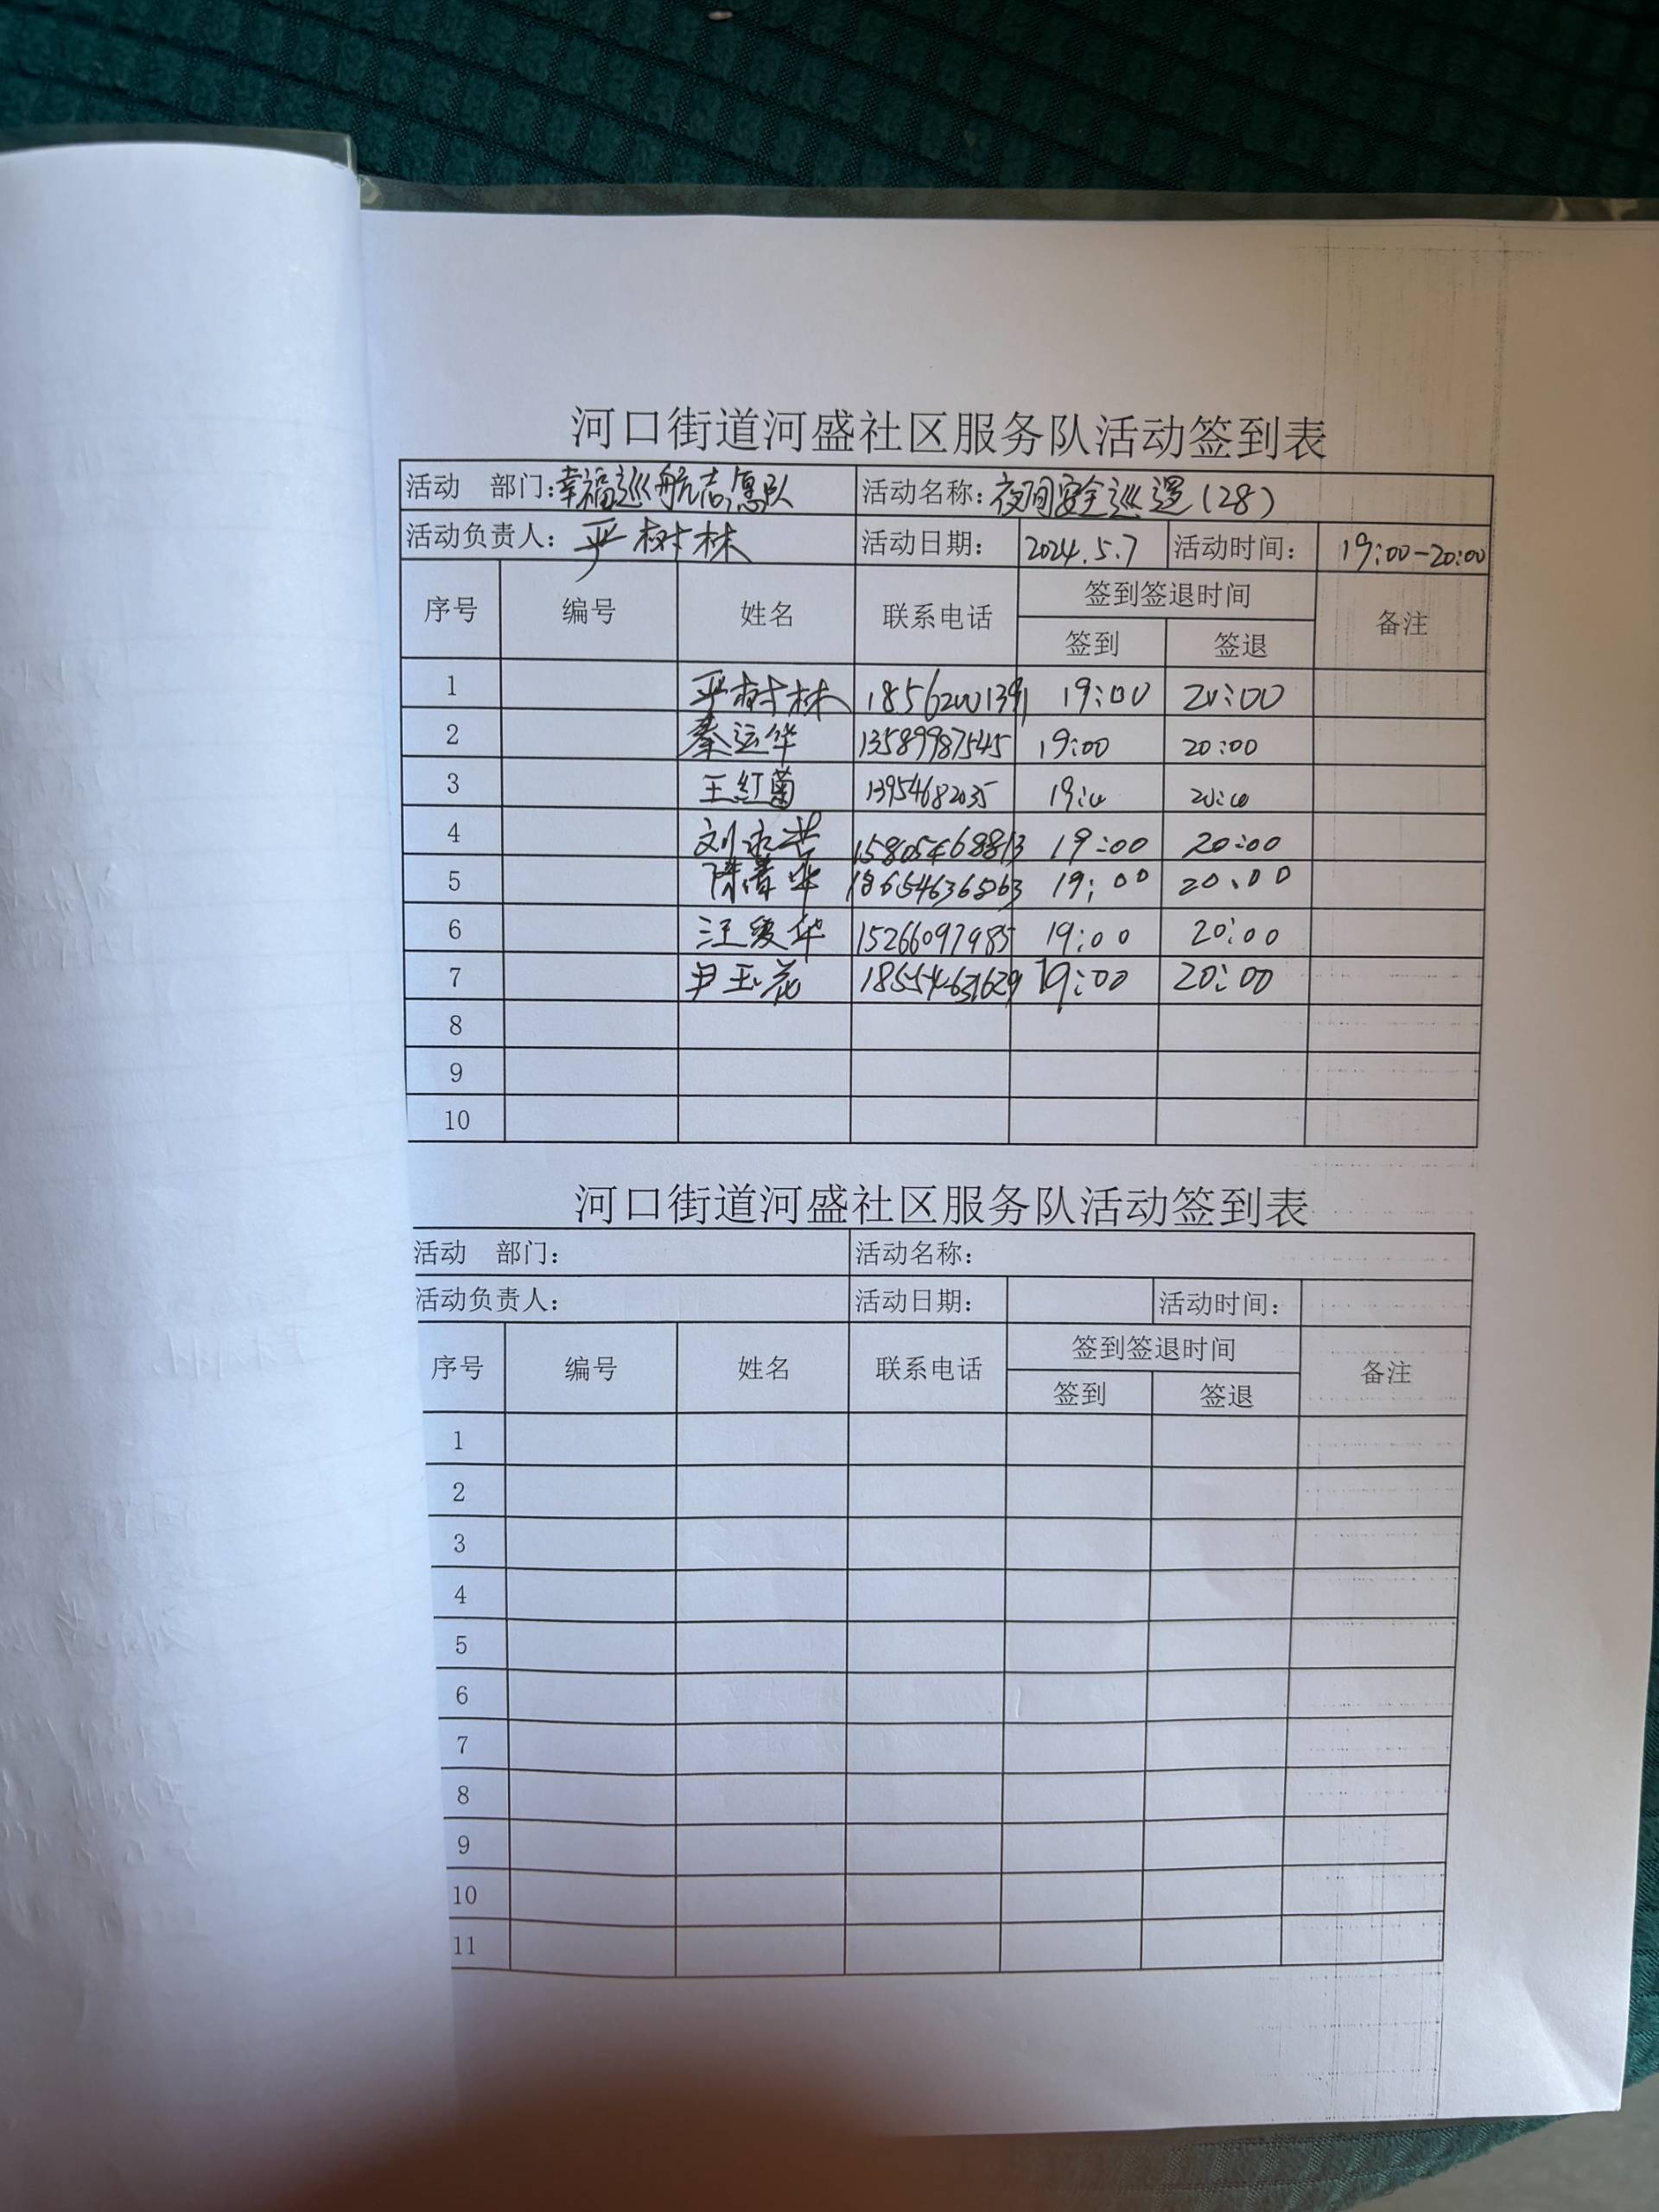 河口街道河盛社区服务队活动签到表
活动 部门:幸福巡航志愿队 活动名称:夜间安全巡逻(28)
活动负责人: 严树林 活动日期: 2024.5.7 活动时间: 19:00-20:00
序号 编号 姓名 联系电话 签到签退时间 备注
签到 签退
1 严树林 18562001391 19:00 20:00
2 秦运华 13589987545 19:00 20:00
3 王红菊 13954682035 19:00 20:00
4 15805468813 19:00 20:00
5 19:00 20:00
6 汪爱华 15266097985 19:00 20:00
7 尹玉花 18554631629 19:00 20:00
8
9
10
河口街道河盛社区服务队活动签到表
活动 部门: 活动名称:
活动负责人: 活动日期: 活动时间:
序号 编号 姓名 联系电话 签到签退时间 备注
签到 签退
1
2
3
4
5
6
7
8
9
10
11